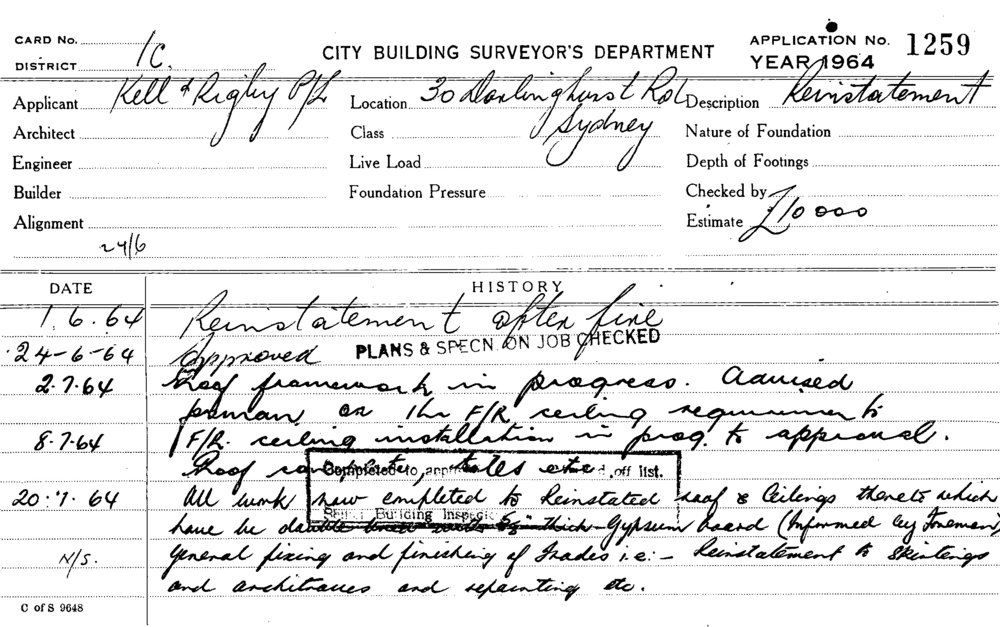 CARD No.
DISTRICT 1C.
CITY BUILDING SURVEYOR'S DEPARTMENT
APPLICATION No. 1259
YEAR 1964
Applicant Kell & Rigby P/L Location 30 Darlinghurst Rd Description Reinstatement
Architect Class Sydney Nature of Foundation
Engineer Live Load Depth of Footings
Builder Foundation Pressure Checked by
Alignment Estimate £10000
24/6
DATE HISTORY
1.6.64 Reinstatement after fire
24-6-64 Approved PLANS & SPECN. ON JOB CHECKED
2.7.64 Roof framework in progress. Advised
foreman on 1hr F/R ceiling requirements
8.7.64 F/R. ceiling installation in prog. to approval.
Roof complete, off list.
Completed to
20.7.64 All work now completed to Reinstated roof & Ceilings thereto which
Building Inspec
have be double thick Gypsum board (Informed by Foreman)
N/S. General fixing and finishing of Trades i.e:- Reinstatement to Skirtings
and architraves and repainting etc.
C of S 9648